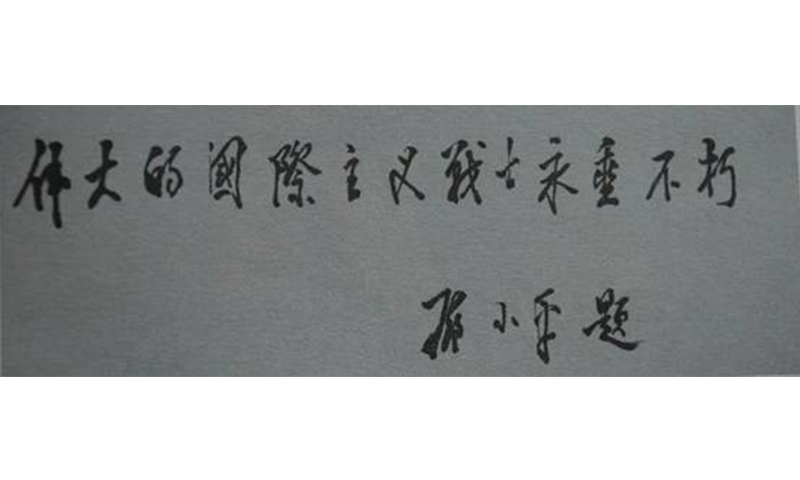 伟大的國際主义戰士永垂不朽
邓小平题